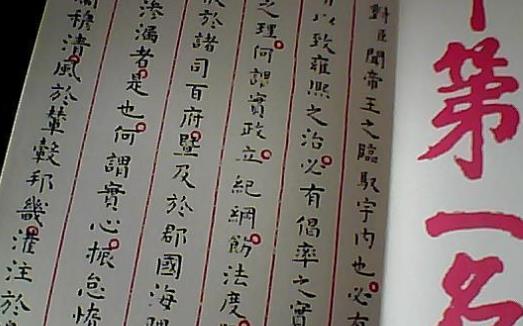 第一名
對臣聞帝王之臨馭宇內也必有
以致雍熙之治必有倡率之實
之理何謂實政立紀綱飭法度
於諸司百府曁及於郡國海
滲漏者是也何謂實心振怠惰
穆清風於輦轂邦畿灌注於